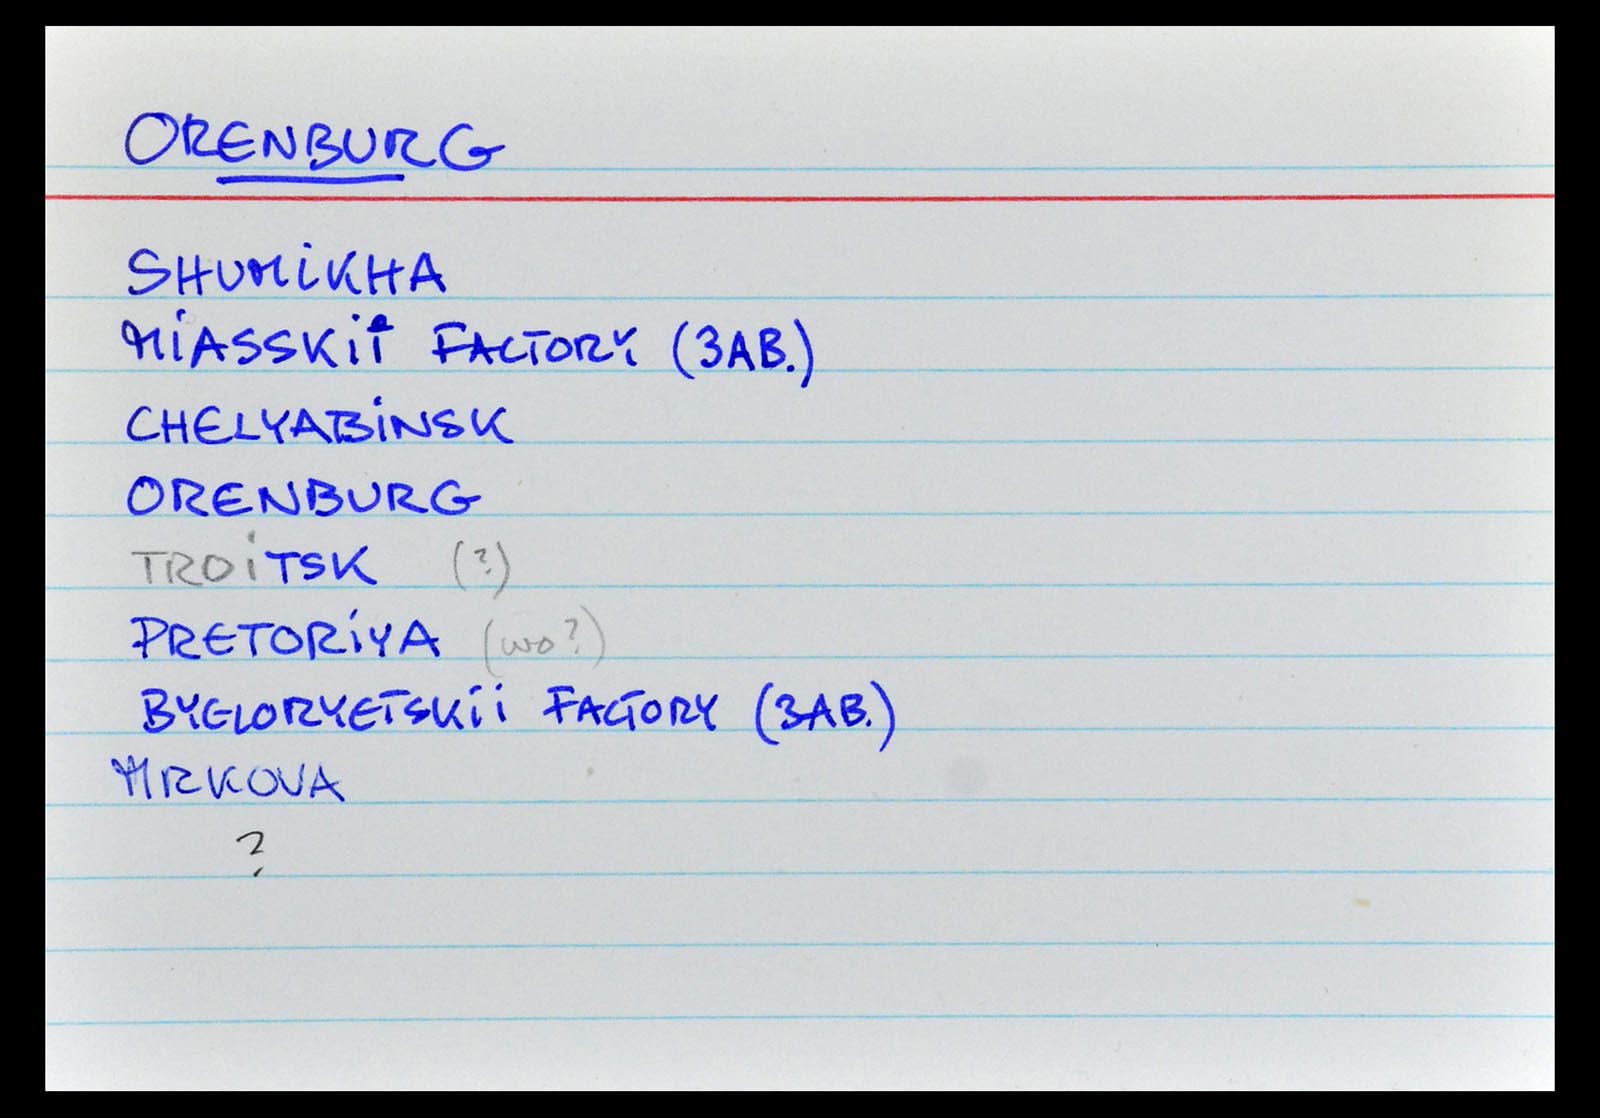 ORENBURG
SHUMIKHA
MIASSKII FACTORY (ЗАВ.)
CHELYABINSK
ORENBURG
TROITSK (?)
PRETORIYA (wo?)
BYELORYETSKII FACTORY (ЗАВ.)
MRKOVA
?